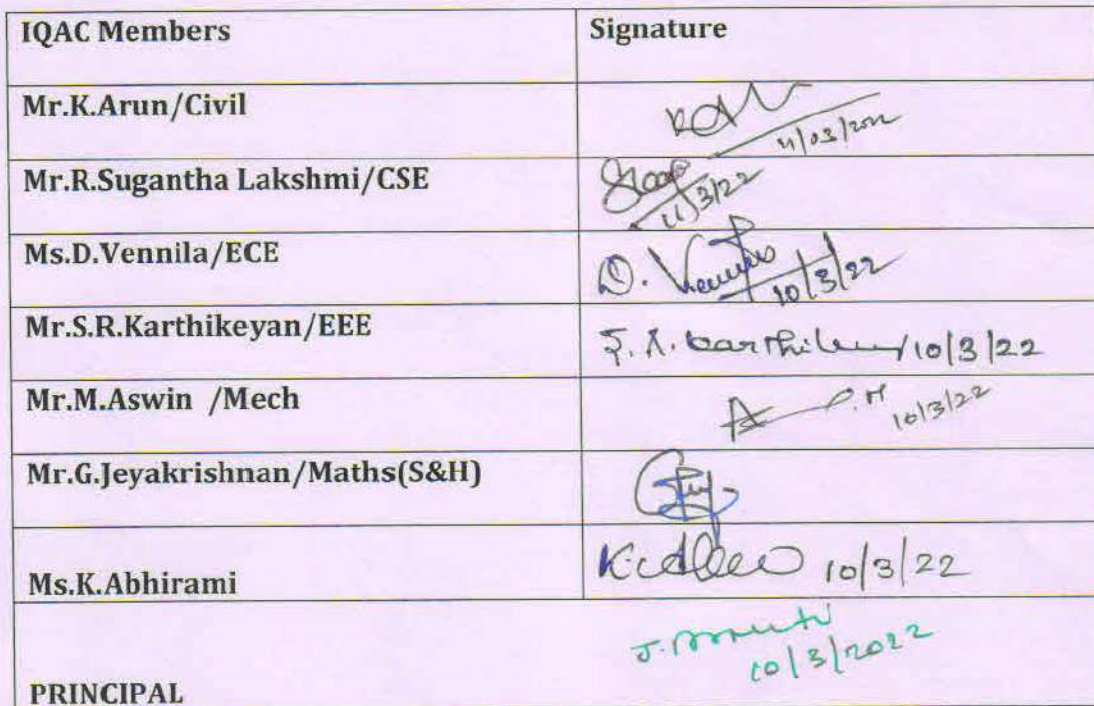 IQAC Members Signature
Mr.K.Arun/Civil
11/03/2022
Mr.R.Sugantha Lakshmi/CSE
11/3/22
Ms.D.Vennila/ECE D.
10/3/22
Mr.S.R.Karthikeyan/EEE S.R. 10/3/22
Mr.M.Aswin /Mech 10/3/22
Mr.G.Jeyakrishnan/Maths(S&H)
Ms.K.Abhirami 10/3/22
J.
10/3/2022
PRINCIPAL